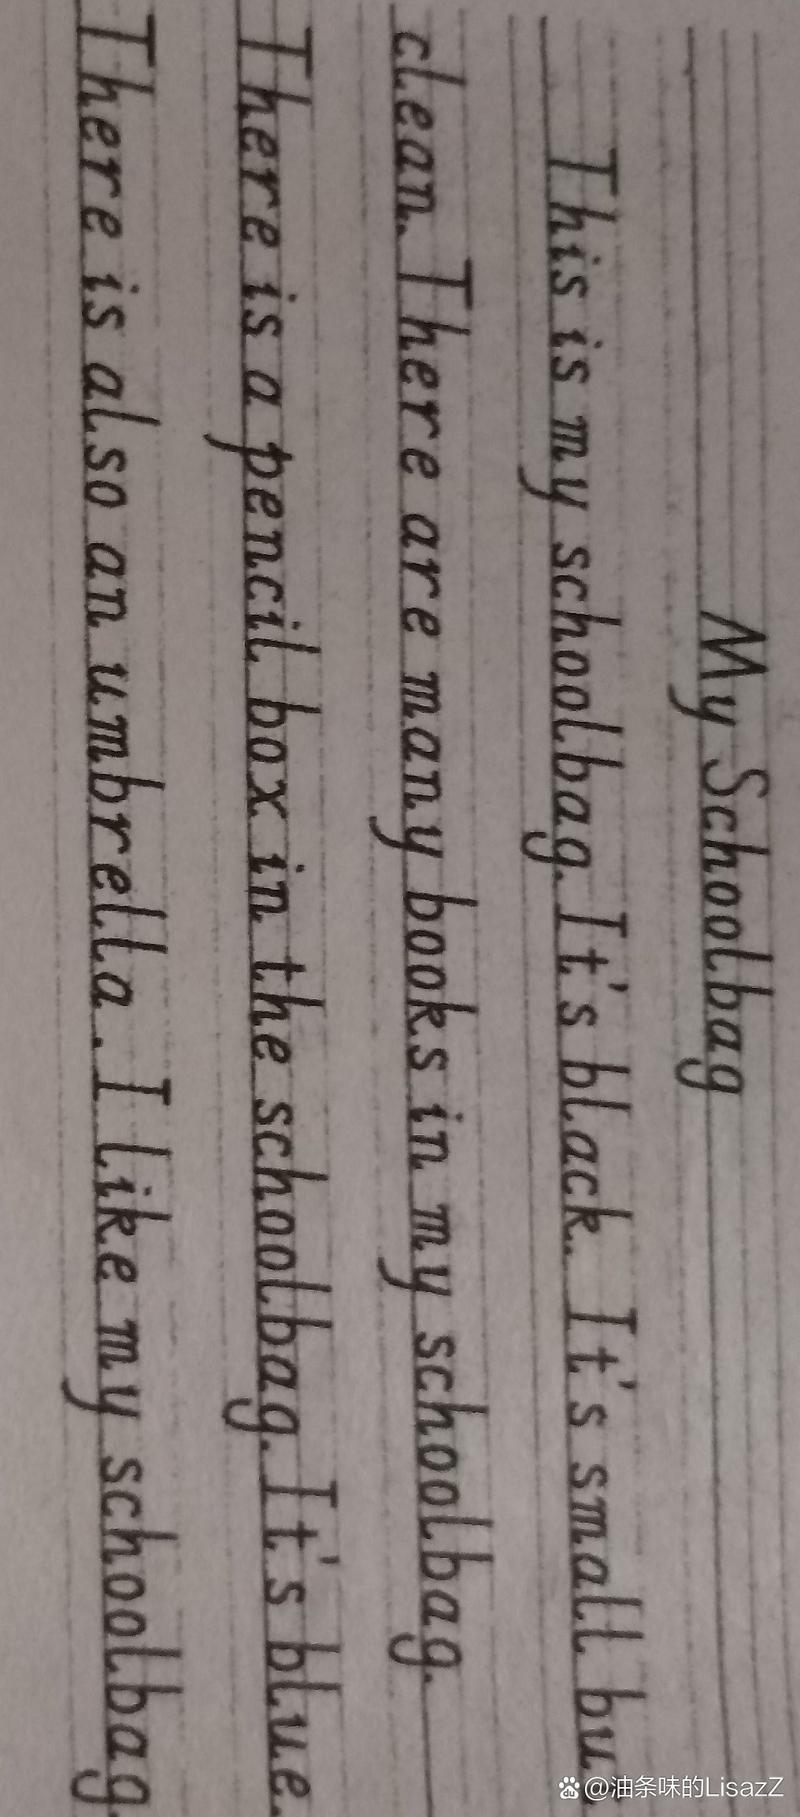 My Schoolbag
This is my schoolbag. It's black. It's small bu
clean. There are many books in my schoolbag.
There is a pencil box in the schoolbag. It's blue.
There is also an umbrella. I like my schoolbag.
@油条味的LisazZ